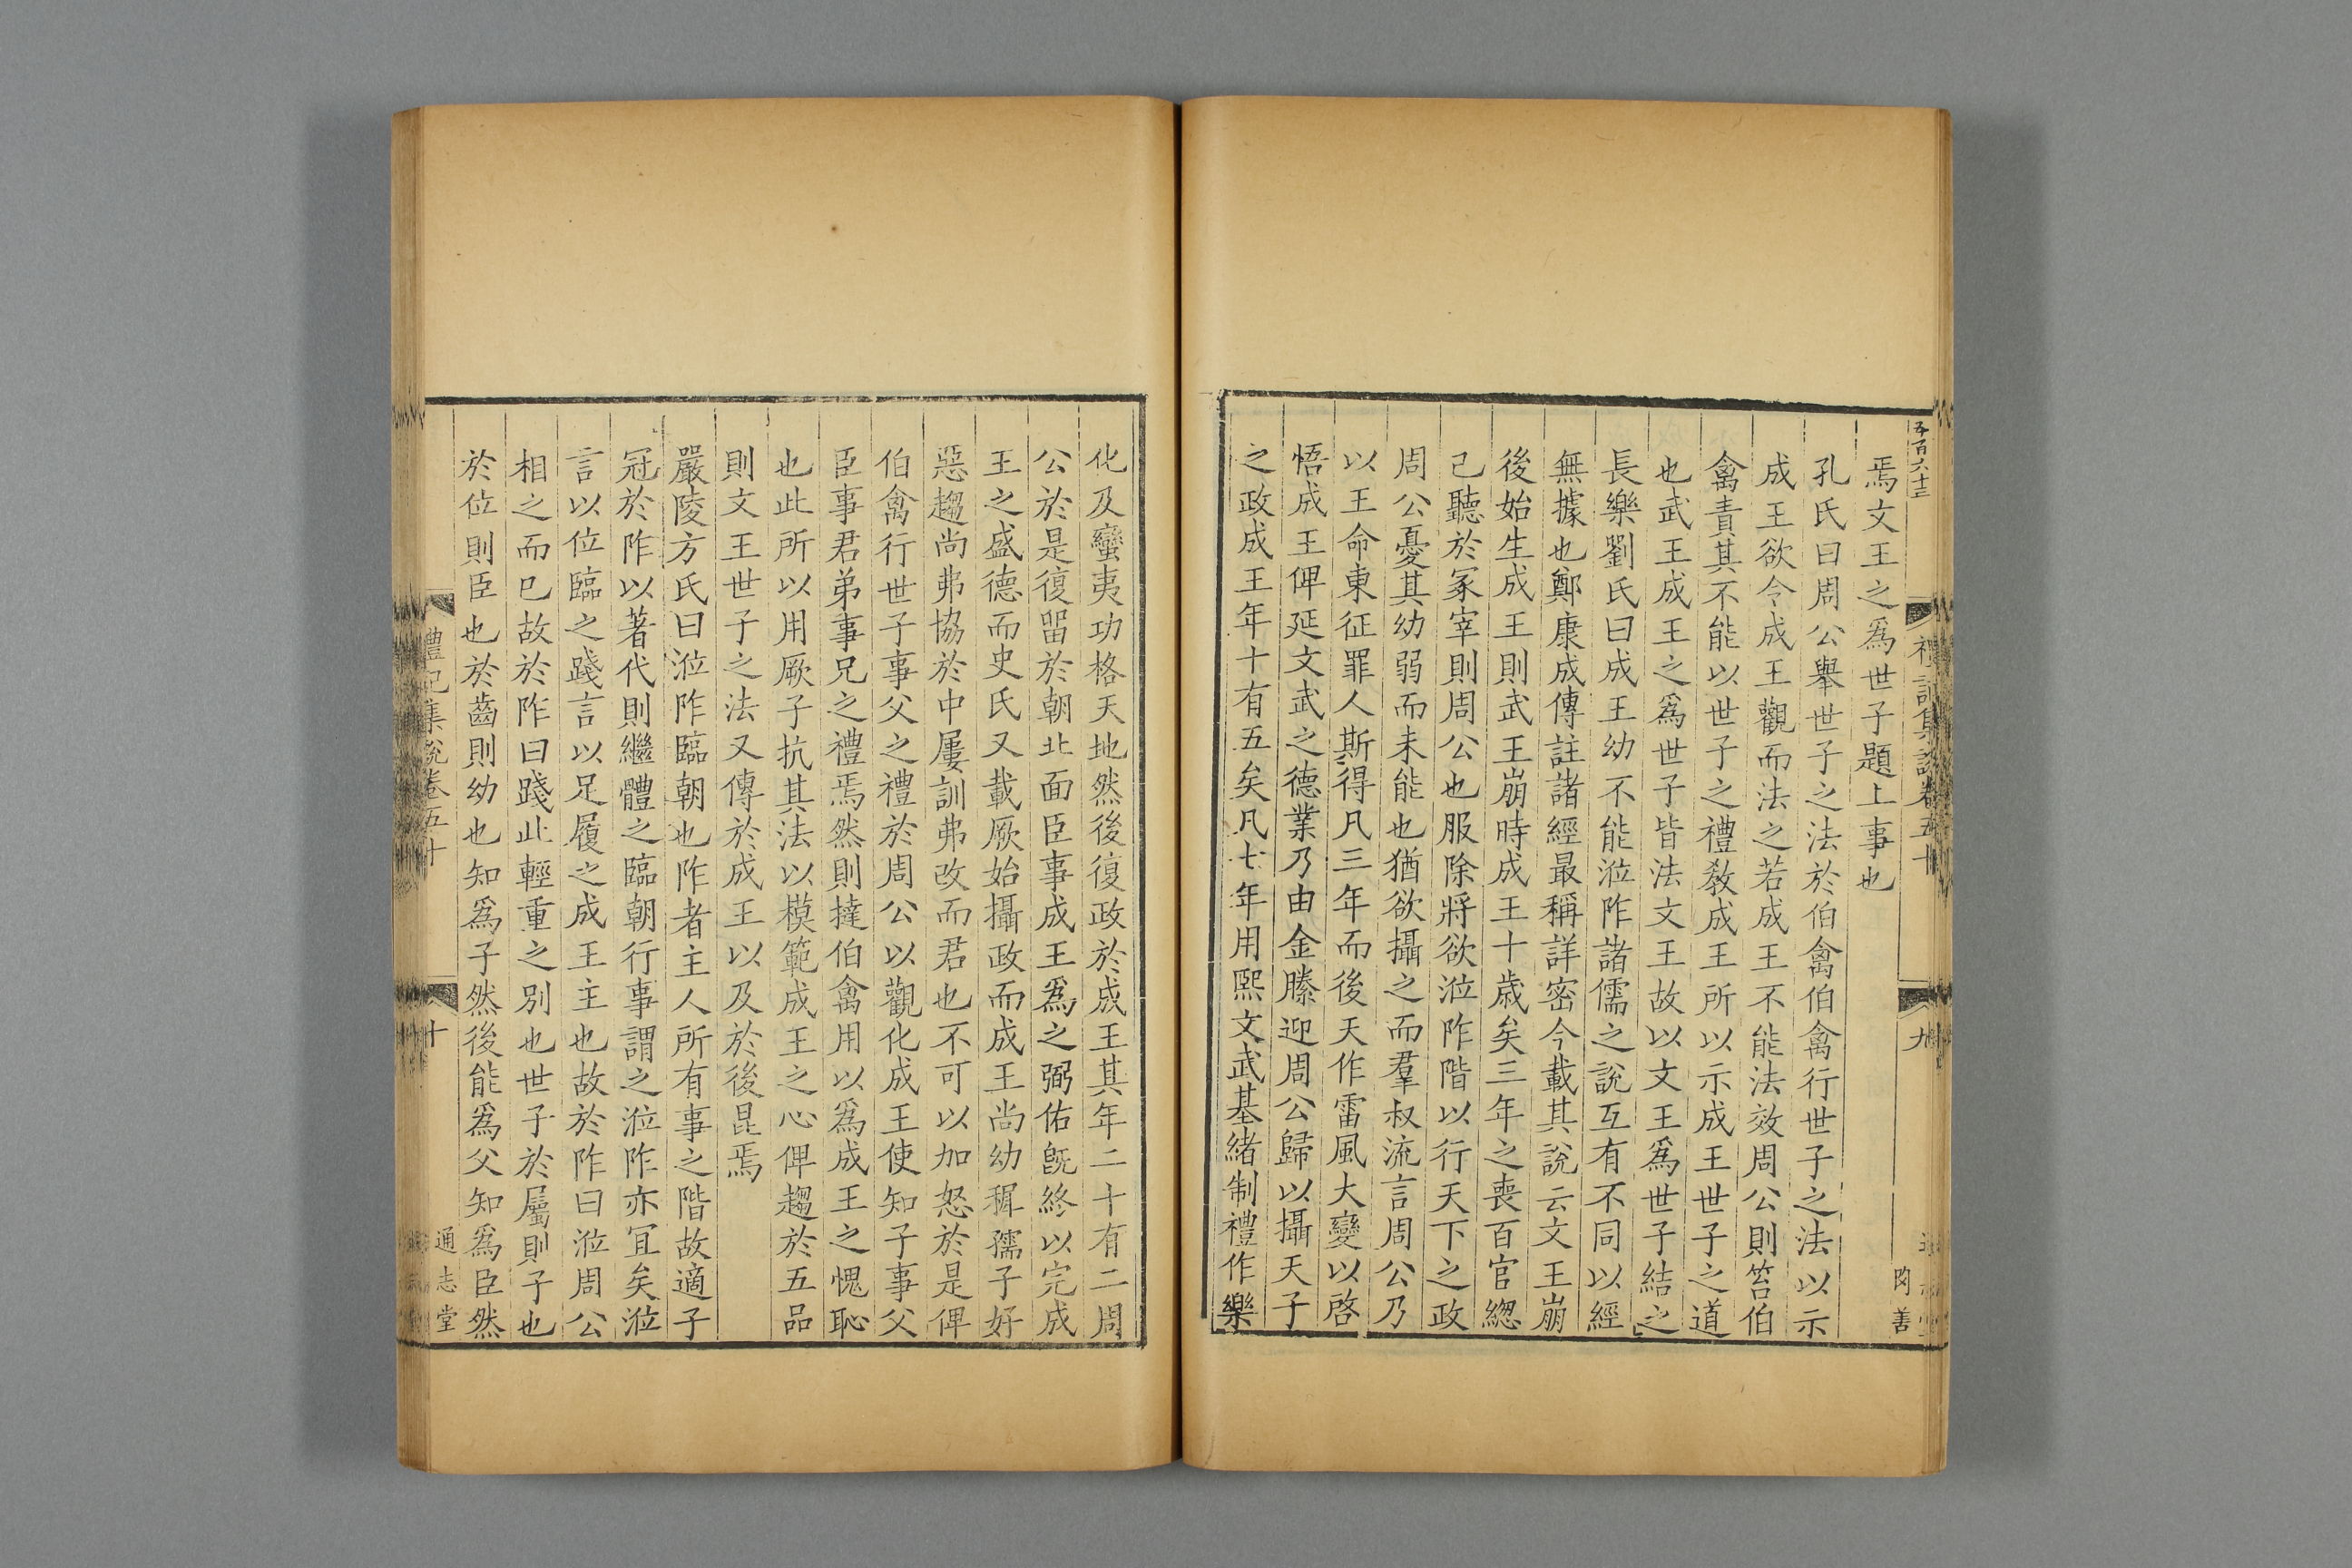 五百六十三
禮記集說卷五十
九
焉文王之爲世子題上事也
孔氏曰周公舉世子之法於伯禽伯禽行世子之法以示
成王欲令成王觀而法之若成王不能法效周公則笞伯
禽責其不能以世子之禮敎成王所以示成王世子之道
也武王成王之爲世子皆法文王故以文王爲世子結之
長樂劉氏曰成王幼不能涖阼諸儒之說互有不同以經
無據也鄭康成傳註諸經最稱詳密今載其說云文王崩
後始生成王則武王崩時成王十歲矣三年之喪百官緫
己聽於冢宰則周公也服除將欲涖阼階以行天下之政
周公憂其幼弱而未能也猶欲攝之而羣叔流言周公乃
以王命東征罪人斯得凡三年而後天作雷風大變以啓
悟成王俾延文武之德業乃由金縢迎周公歸以攝天子
之政成王年十有五矣凡七年用熙文武基緒制禮作樂
化及蠻夷功格天地然後復政於成王其年二十有二周
公於是復留於朝北面臣事成王爲之弼佑旣終以完成
王之盛德而史氏又載厥始攝政而成王尚幼稺孺子好
惡趨尚弗協於中屢訓弗改而君也不可以加怒於是俾
伯禽行世子事父之禮於周公以觀化成王使知子事父
臣事君弟事兄之禮焉然則撻伯禽用以爲成王之愧恥
也此所以用厥子抗其法以模範成王之心俾趨於五品
則文王世子之法又傳於成王以及於後昆焉
嚴陵方氏曰涖阼臨朝也阼者主人所有事之階故適子
冠於阼以著代則繼體之臨朝行事謂之涖阼亦宜矣涖
言以位臨之踐言以足履之成王主也故於阼曰涖周公
相之而已故於阼曰踐此輕重之別也世子於屬則子也
於位則臣也於齒則幼也知爲子然後能爲父知爲臣然
禮記集說卷五十
十
通志堂